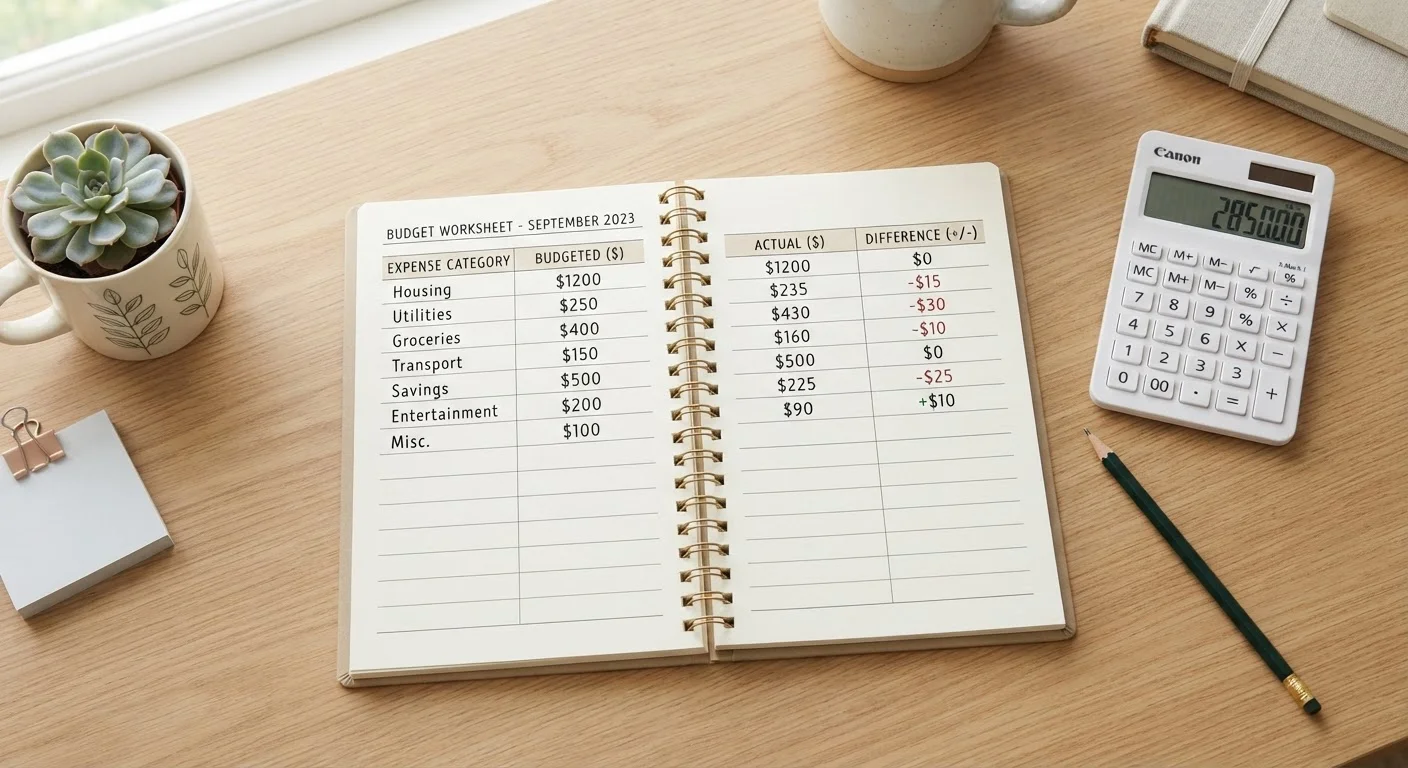 BUDGET WORKSHEET - SEPTEMBER 2023
EXPENSE CATEGORY BUDGETED ($) ACTUAL ($) DIFFERENCE (+/-)
Housing $1200 $1200 $0
Utilities $250 $235 -$15
Groceries $400 $430 -$30
Transport $150 $160 -$10
Savings $500 $500 $0
Entertainment $200 $225 -$25
Misc. $100 $90 +$10
Canon
285000
MC M+ M- √ %
MC M+ M- % ÷
7 8 9 % ×
4 5 6 × −
1 2 3 3 +
0 00 · =